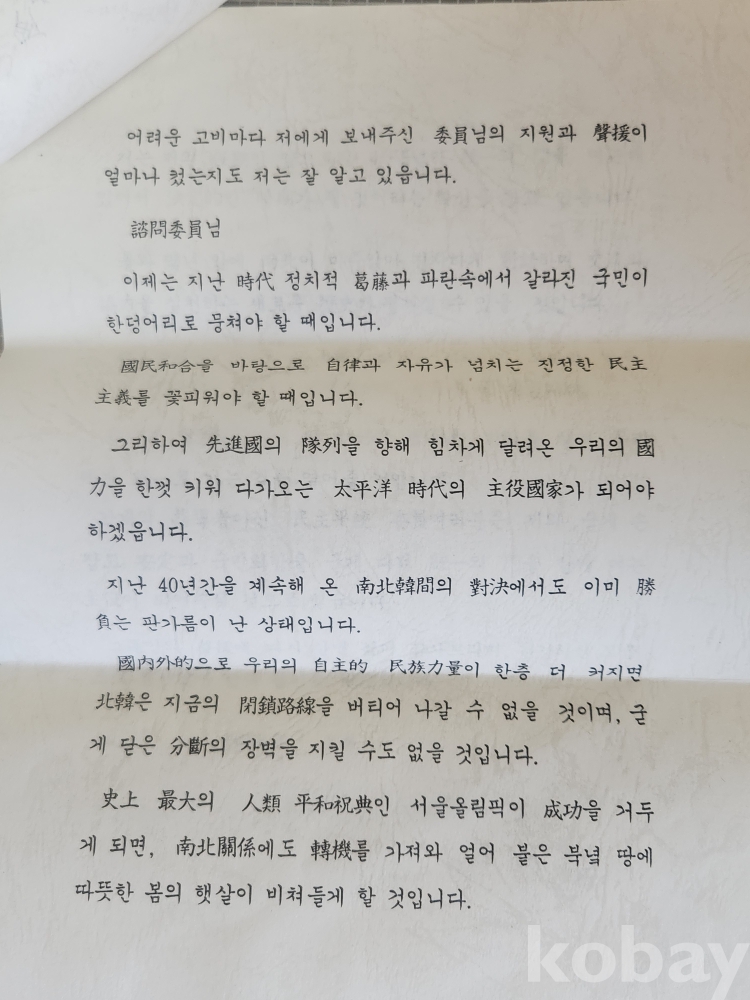 어려운 고비마다 저에게 보내주신 委員님의 지원과 聲援이
얼마나 컸는지도 저는 잘 알고 있읍니다.
諮問委員님
이제는 지난 時代 정치적 葛藤과 파란속에서 갈라진 국민이
한덩어리로 뭉쳐야 할 때입니다.
國民和合을 바탕으로 自律과 자유가 넘치는 진정한 民主
主義를 꽃피워야 할 때입니다.
그리하여 先進國의 隊列을 향해 힘차게 달려온 우리의 國
力을 한껏 키워 다가오는 太平洋 時代의 主役國家가 되어야
하겠읍니다.
지난 40년간을 계속해 온 南北韓間의 對決에서도 이미 勝
負는 판가름이 난 상태입니다.
國內外的으로 우리의 自主的 民族力量이 한층 더 커지면
北韓은 지금의 閉鎖路線을 버티어 나갈 수 없을 것이며, 굳
게 닫은 分斷의 장벽을 지킬 수도 없을 것입니다.
史上 最大의 人類 平和祝典인 서울올림픽이 成功을 거두
게 되면, 南北關係에도 轉機를 가져와 얼어 붙은 북녘 땅에
따뜻한 봄의 햇살이 비쳐들게 할 것입니다.
kobay